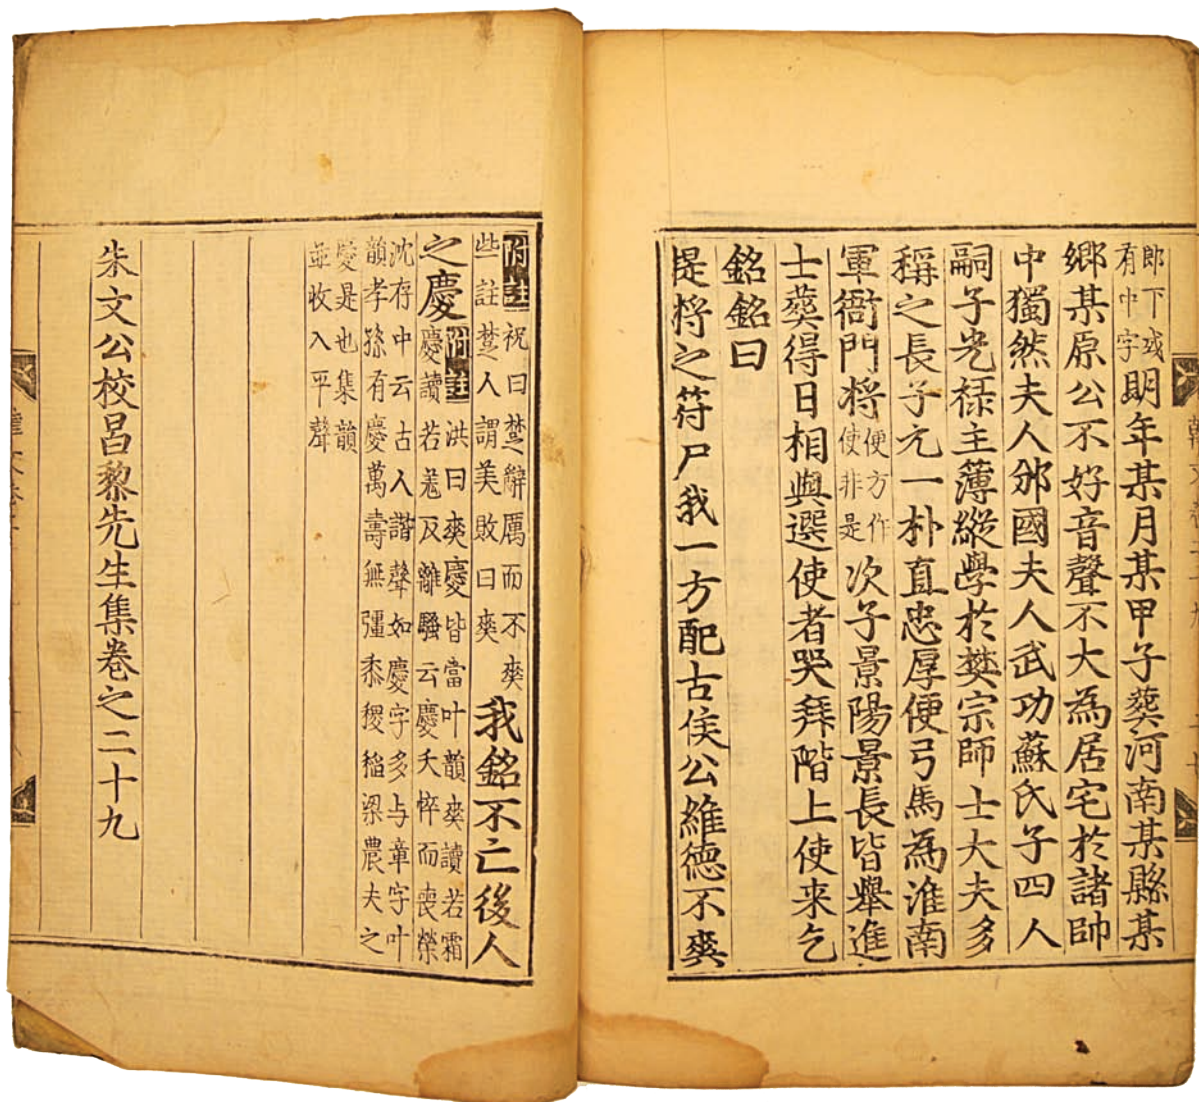 郎下或
有中字
明年某月某甲子葬河南某縣某
鄉某原公不好音聲不大為居宅於諸帥
中獨然夫人邠國夫人武功蘇氏子四人
嗣子光祿主簿縱學於樊宗師士大夫多
稱之長子元一朴直忠厚便弓馬為淮南
軍衙門將
便方作
使非是
次子景陽景長皆舉進
士葬得日相與選使者哭拜階上使来乞
銘銘曰
提將之符尸我一方配古侯公維德不爽
附註
祝曰楚辭厲而不爽
些註楚人謂美敗曰爽
我銘不亡後人
之慶
附註
洪曰爽慶皆當叶韻爽讀若霜
慶讀若羌反離騷云慶夭悴而喪榮
沈存中云古人諧聲如慶字多与章字叶
韻孝孫有慶萬壽無彊黍稷稲梁農夫之
慶是也集韻
並收入平聲
朱文公校昌黎先生集卷之二十九